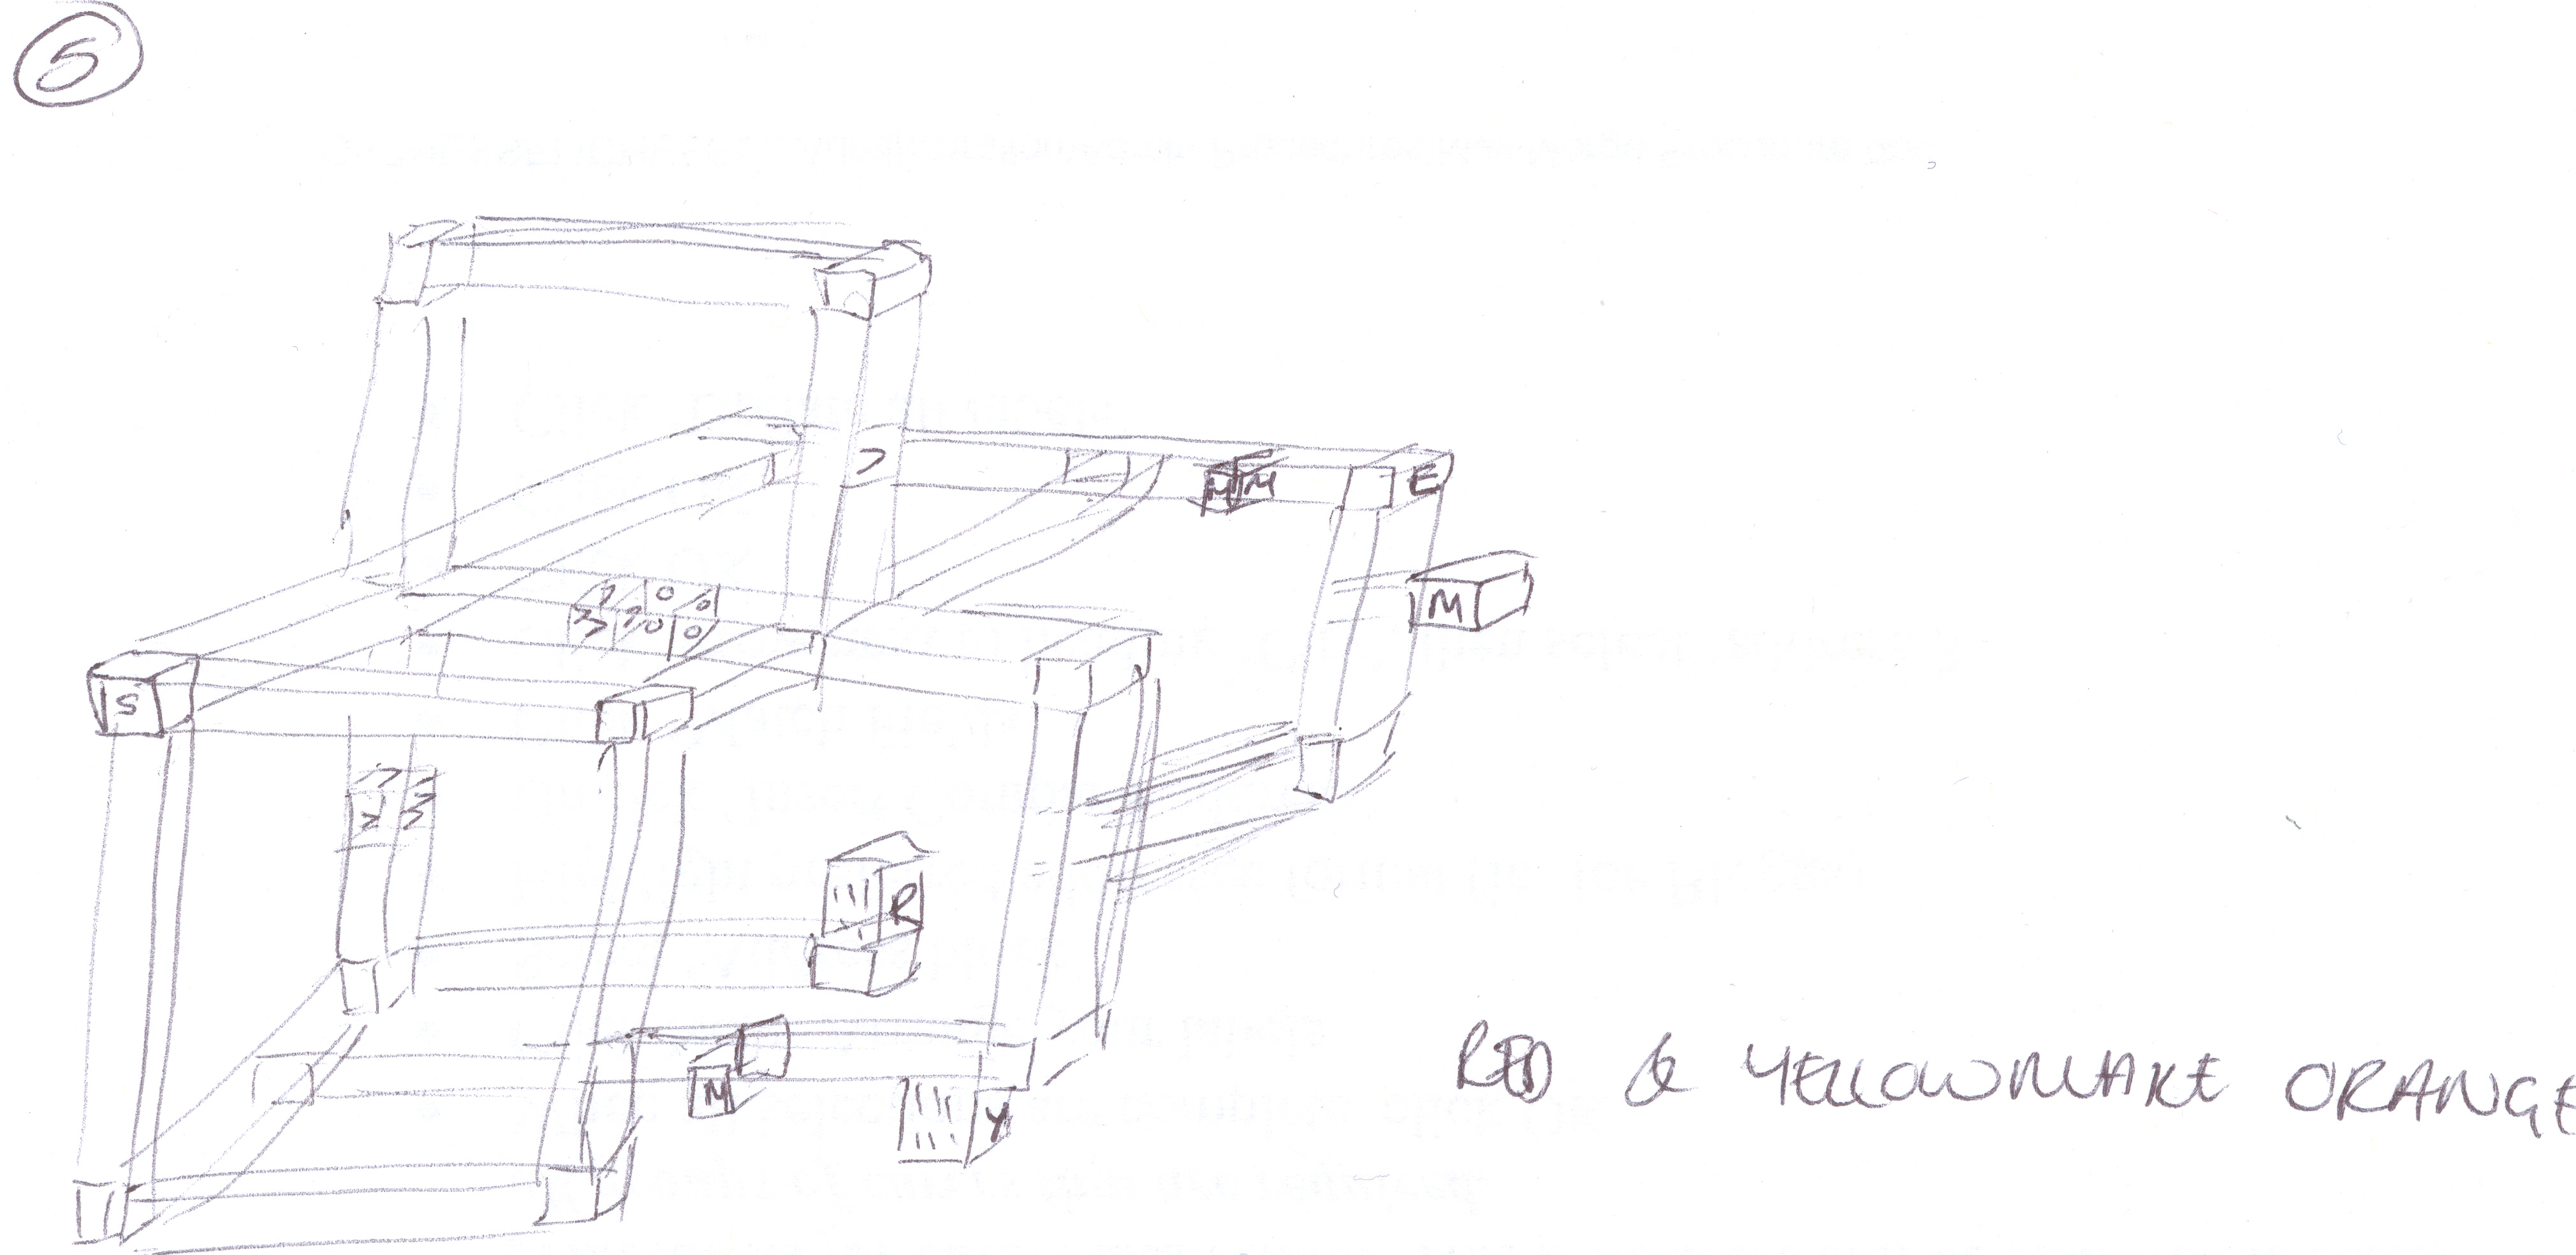 5
E
M M
M
S
R
M
Y
RED & YELLOW MAKE ORANGE